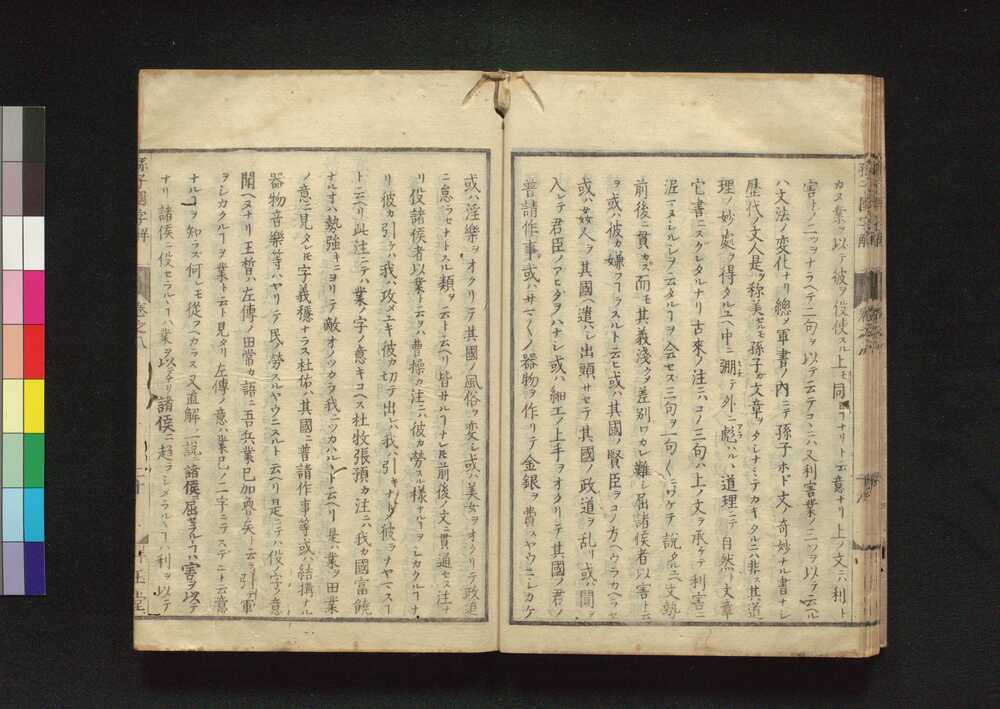 カヌ業ヲ以テ彼ヲ役使スル上モ同コナリト云意ナリ上ノ文ニハ利ト
害トノ二ツヲナラヘテ二句ヲ以テ云テコヽニハ又利害業ノ三ツヲ以テ云ル
ハ文法ノ変化ナリ總〆軍書ノ内ニテ孫子ホド文ノ奇妙ナル書ナシ
歴代ノ文人是ヲ称美セルモ孫子ガ文章ヲタシナミテカキタルニハ非ス其道
理ノ妙處ヲ得タルユヘ中ニ弸テ外ニ彪ハルヽ道理ニテ自然ハ文章
它書ニスグレタルナリ古來ノ注ニハコノ三句ハ上ノ文ヲ承ケテ利害ニ
泥マヌシルシヲ云タルコヲ会セス三句ヲ一句〱ニワケテ説タルユヘ文勢
前後ニ貫カズ而モ其義淺クメ差別ワカレ難シ屈諸侯者以害ト云
ヲ或ハ彼カ嫌フコヲスルト云ヒ或ハ其國ノ賢臣ヲコノ方ヘウラカヘラセ
或ハ姦人ヲ其國ヘ遣ハシ出頭サセテ其國ノ政道ヲ乱リ或ハ間ヲ
入レテ君臣ノアヒダヲハナシ或ハ細工ノ上手ヲオクリテ其國ノ君ノ
普請作事或ハサマ〱ノ器物ヲ作リテ金銀ヲ費スヤウニシカケ
或ハ淫樂ヲオクリテ其國ノ風俗ヲ変シ或ハ美女ヲオクリテ政道
ニ怠ラセナトスル類ヲ云ト云ヘリ皆サルコナレモ前後ノ文ニ貫通セス注ナ
リ役諸侯者以業ト云ヲハ曹操カ注ニハ彼カ勞スル様ナルコヲシカクルコナ
リ彼カ引ケハ我ハ攻メユキ彼カ切テ出レハ我ハ引キナトメ彼ヲツヤマスコ
ト云ヘリ此注ニテハ業ノ字ノ意キコヘス杜牧張預カ注ニハ我カ國富饒
ナルオハ勢強キニヨリテ敵オノツカラ我ニツカハルヽト云ヘリ是ハ業ヲ田業
ノ意ニ見タレモ字義穩ナラス杜佑ハ其國ニ普請作事等或ハ結搆ナル
器物音樂等ハヤリテ民ノ勞スルヤウニスルト云ヘリ是ニテハ役ノ字ノ意
聞ヘヌナリ王晳ハ左傳ノ田常カ語ニ吾兵業已加魯矣ト云ヲ引テ軍
ヲシカクルコヲ業ト云ト見タリ左傳ノ意ハ業已ノ二字ニテステニト云意
ナルコヲ知ラズ何レモ從フヘカラス又直解ノ一説ニ諸侯ニ屈セラルヽコハ害ヲ以テ
ナリ諸侯ニ役セラルヽコハ業ヲ以テナリ諸侯ニ趨ラシメラルヽコハ利ヲ以テ
孫子國字解
卷之八